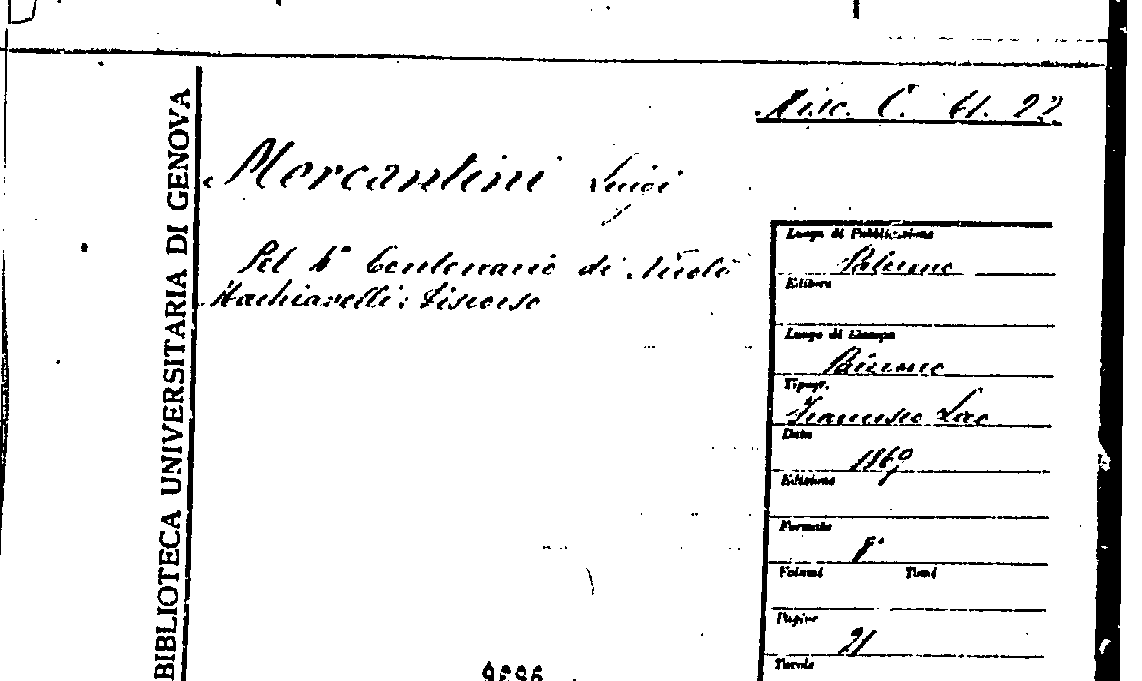 BIBLIOTECA UNIVERSITARIA DI GENOVA
Misc. C. 61. 22
Mercantini Luigi
Pel 4° Centenario di Nicolò
Machiavelli: Discorso
Luogo di Pubblicazione
Palermo
Editore
Luogo di Stampa
Palermo
Tipogr.
Francesco Lao
Data
1869
Edizione
Formato
8°
Volumi Tomi
Pagine
21
Tavole